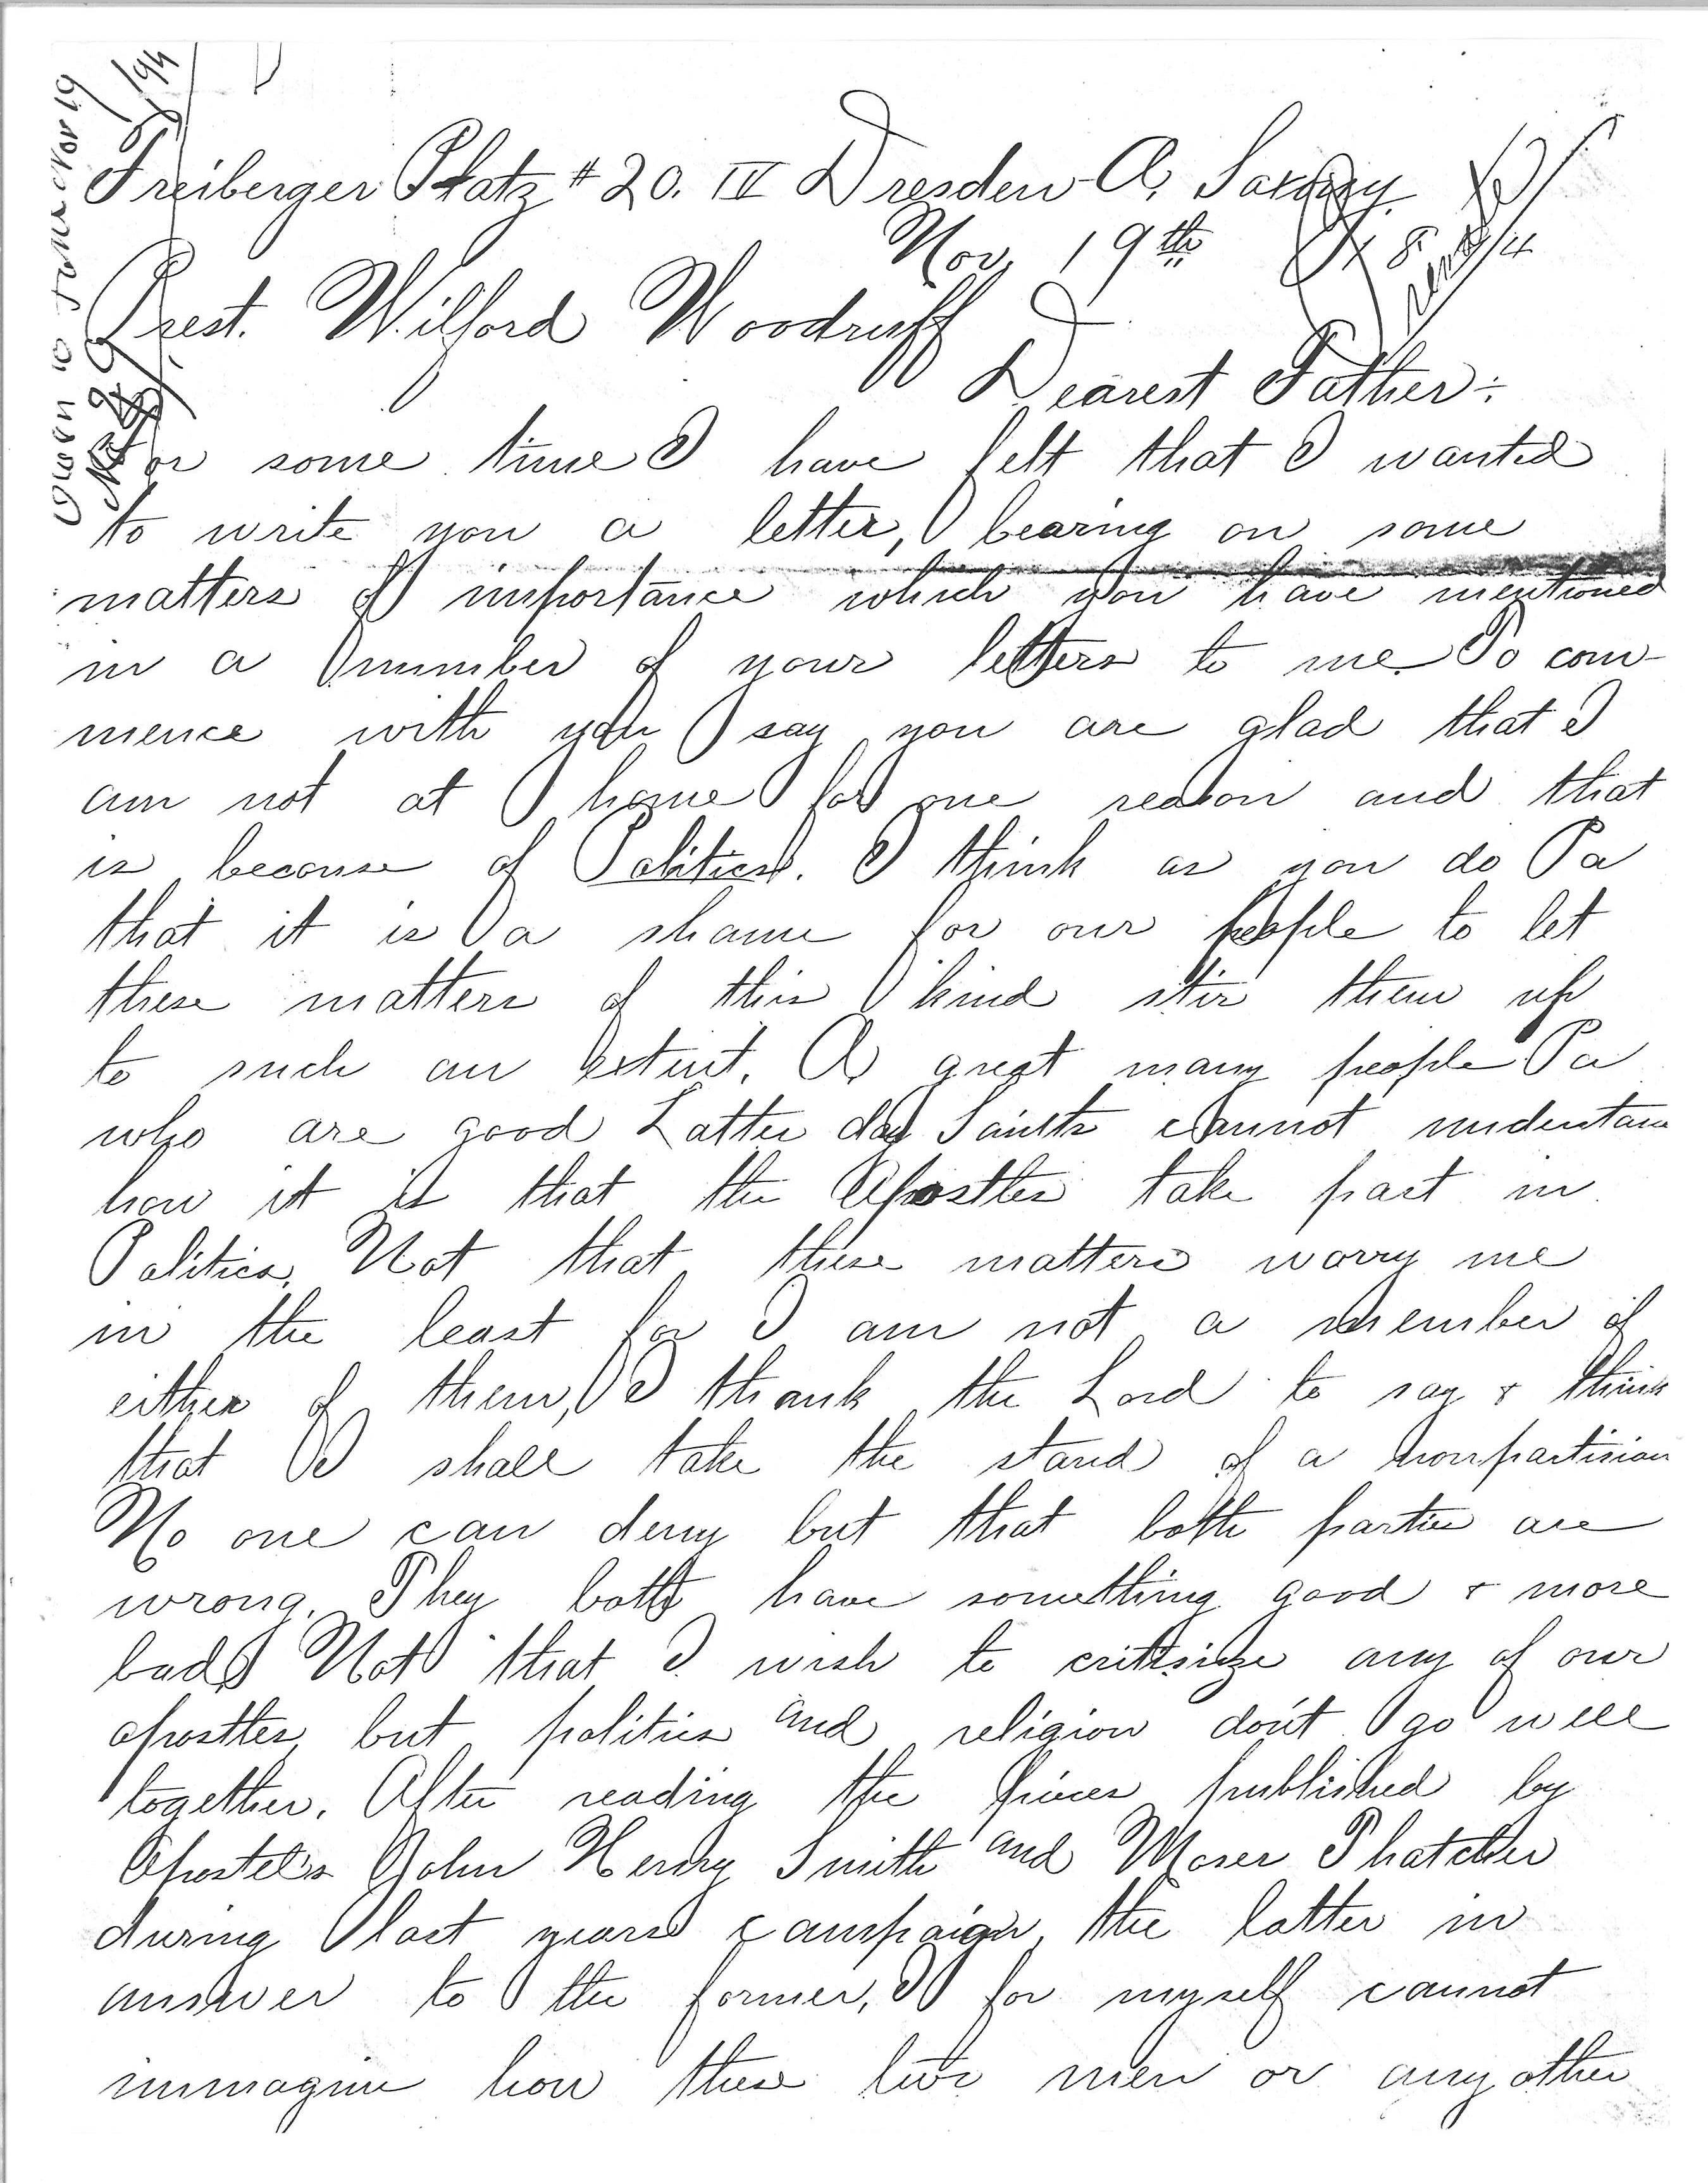 Owen to Father Nov 19
/94
Freiberger Platz # 20. IV Dresden-A, Saxony
Nov, 19th 1894
Prest. Wilford Woodruff
Dearest Father:
For some time I have felt that I wanted
to write you a letter, bearing on some
matters of importance which you have mentioned
in a number of your letters to me. To com-
mence with you say you are glad that I
am not at home for one reason and that
is because of Politics. I think as you do Pa
that it is a shame for our people to let
these matters of this kind stir them up
to such an extent. A great many people Pa
who are good Latter day Saints cannot understan
how it is that the Apostles take part in
Politics. Not that these matters worry me
in the least for I am not a member of
either of them, I thank the Lord to say & think
that I shall take the stand of a nonpartisian
No one can deny but that both parties are
wrong. They both have something good & more
bad. Not that I wish to critisize any of our
apostles, but politics and religion don't go well
together. After reading the pieces published by
Apostels John Henry Smith and Moses Thatcher
during last years campaign, the latter in
answer to the former, I for myself cannot
immagine how these two men or any other